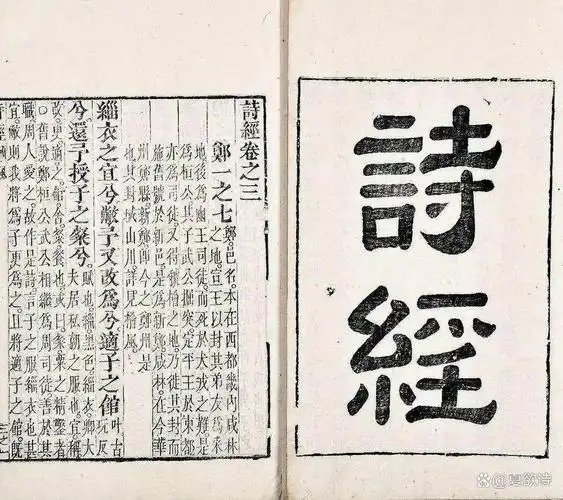 詩經
詩經卷之三
鄭一之七
鄭。邑名。本在西都畿内咸林
之地。宣王以封其弟友爲采
地後爲幽王司徒。而死於犬戎之難。是
爲桓公。其子武公掘突。定平王於東都
亦爲司徒。又得虢檜之地。乃徙其封而
施舊號於新邑。是爲新鄭。咸林。在今華
州鄭縣。新鄭。即今之鄭州是
也。其封域山川。詳見檜風。
緇衣之宜兮。敝予又改爲兮。適子之館
叶古
玩反
兮。還予授子之粲兮。
賦也。緇。黑色。緇衣。卿大
夫居私朝之服也。宜。稱
改。更。適。之。館。舍。粲。餐也。或曰。粲。粟之精鑿者
○舊說鄭桓公武公。相繼爲周司徒。善於其
職。周人愛之。故作是詩。言子之服緇衣也。甚
宜。敝則我將爲子更爲之。且將適子之館。既
@夏欲诗